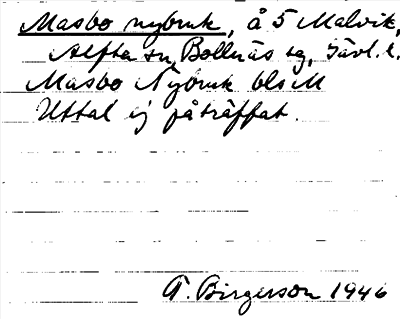 Masbo nybruk, å 5 Malvik,
Alfta sn, Bollnäs sg, Gävl. l.
Masbo Nybruk bls M
Uttal ej påträffat.
T. Birgerson 1946